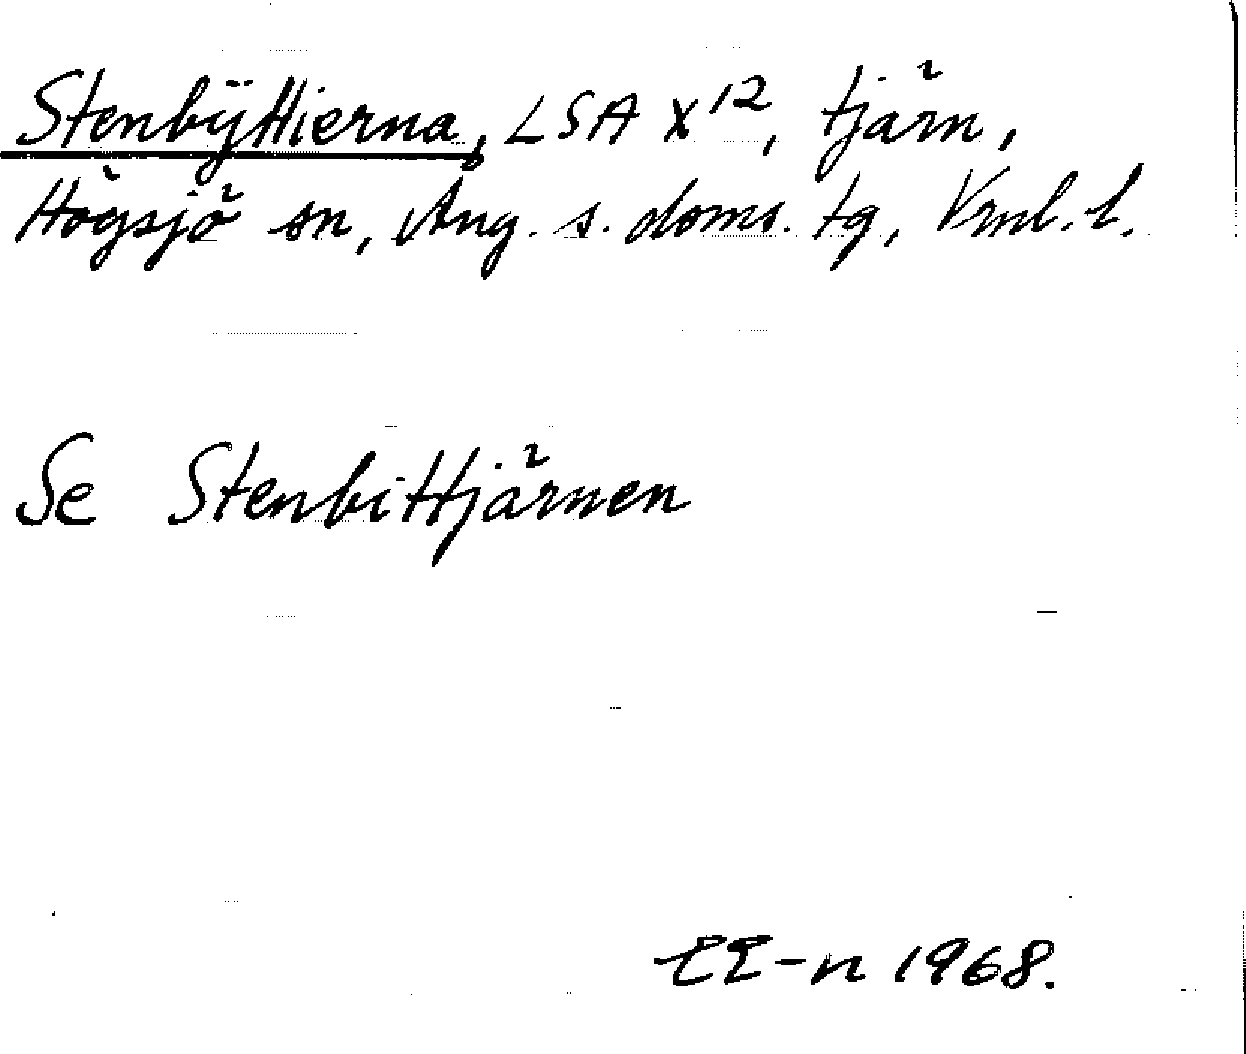 Stenbÿttierna, LSA X¹², tjärn,
Högsjö sn, Ång. s. doms. tg, Vrnl. l.
Se Stenbittjärnen
EE-n 1968.